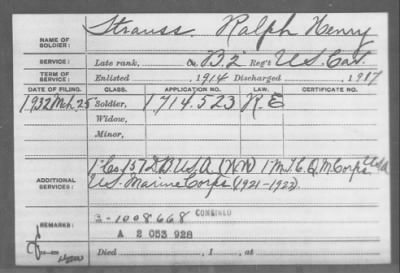 NAME OF SOLDIER: Strauss, Ralph Henry
SERVICE: Late rank, Co. B. 2 Reg't U.S. Cav.
TERM OF SERVICE: Enlisted 1914 Discharged , 1917
DATE OF FILING. CLASS. APPLICATION NO. LAW. CERTIFICATE NO.
1932 Mch. 25 Soldier, 1714.523 R.E
Widow,
Minor,
1" Co. 157 D.B. U.S.A. (WW) 1" M.T.C. Q.M. Corps U.S.A
ADDITIONAL SERVICES: U.S. Marine Corps (1921-1922)
REMARKS: 2-1008668 COMBINED
A 2 053 928
Died , 1 , at